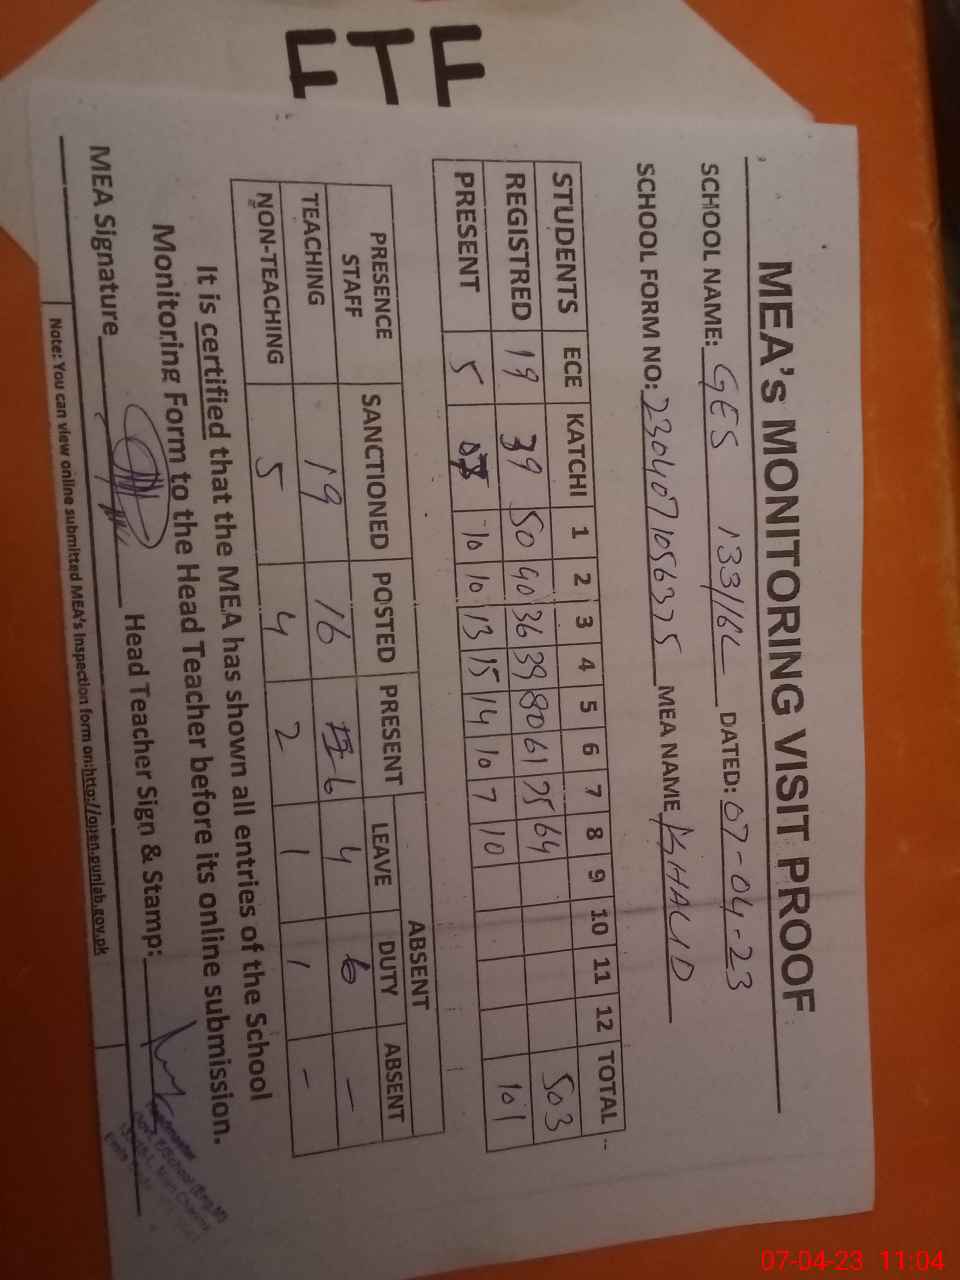 ETF
MEA's MONITORING VISIT PROOF
SCHOOL NAME: GES 133/16L DATED: 07-04-23
SCHOOL FORM NO: 2304071056375 MEA NAME KHALID
STUDENTS ECE KATCHI 1 2 3 4 5 6 7 8 9 10 11 12 TOTAL
REGISTRED 19 39 50 40 36 39 80 61 75 64 503
PRESENT 5 10 10 13 15 14 10 7 10 101
PRESENCE STAFF SANCTIONED POSTED PRESENT ABSENT
LEAVE DUTY ABSENT
TEACHING 19 16 6 4 6 -
NON-TEACHING 5 4 2 1 1 -
It is certified that the MEA has shown all entries of the School
Monitoring Form to the Head Teacher before its online submission.
MEA Signature Head Teacher Sign & Stamp:
Note: You can view online submitted MEA's inspection form on:http://open.punjab.gov.pk
07-04-23 11:04